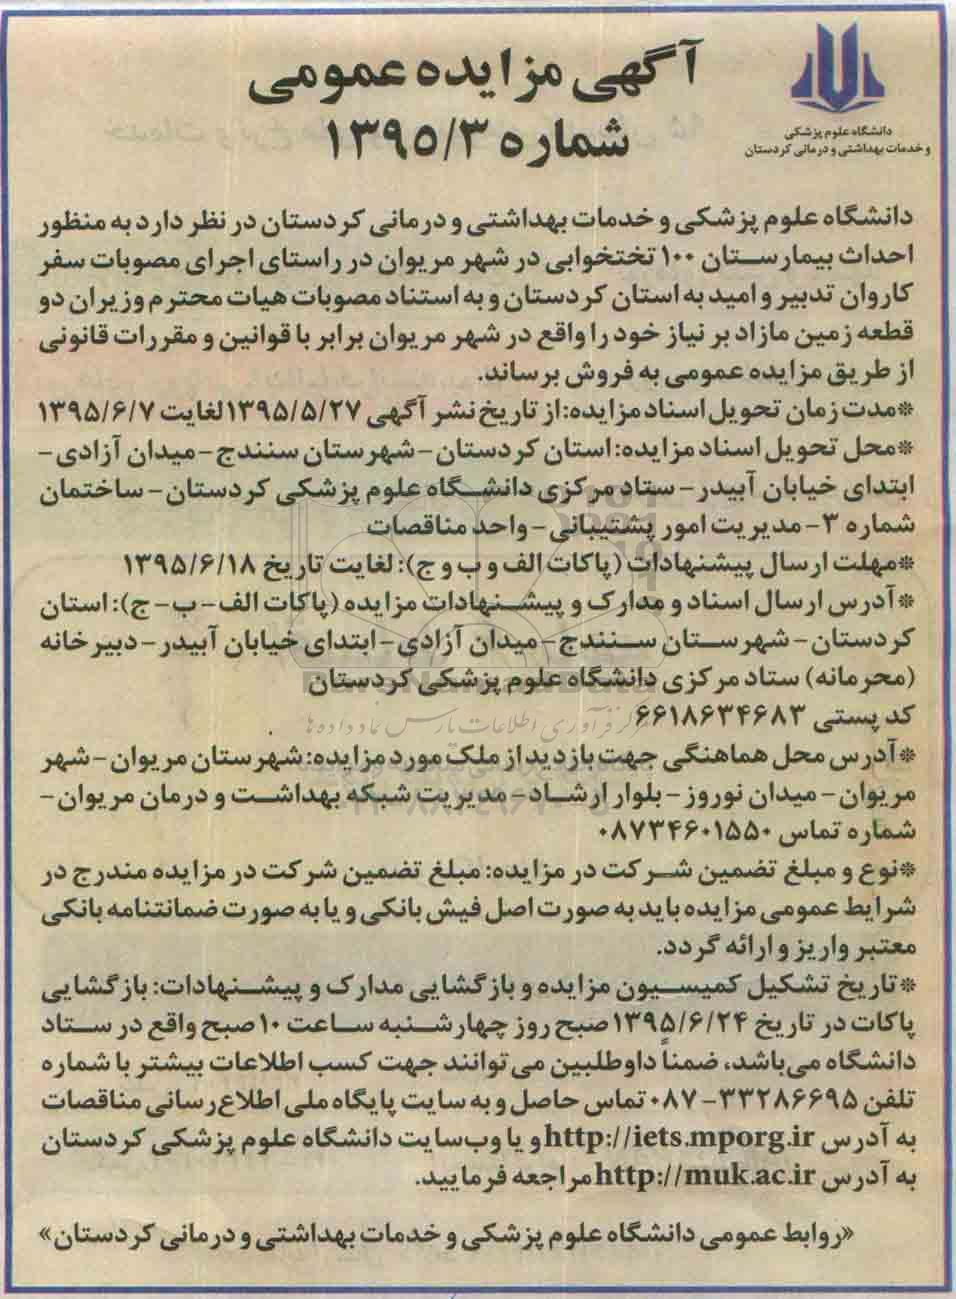 دانشگاه علوم پزشکی
و خدمات بهداشتی و درمانی کردستان
آگهی مزایده عمومی
شماره ۱۳۹۵/۳
دانشگاه علوم پزشکی و خدمات بهداشتی و درمانی کردستان در نظر دارد به منظور
احداث بیمارستان ۱۰۰ تختخوابی در شهر مریوان در راستای اجرای مصوبات سفر
کاروان تدبیر و امید به استان کردستان و به استناد مصوبات هیات محترم وزیران دو
قطعه زمین مازاد بر نیاز خود را واقع در شهر مریوان برابر با قوانین و مقررات قانونی
از طریق مزایده عمومی به فروش برساند.
*مدت زمان تحویل اسناد مزایده: از تاریخ نشر آگهی ۱۳۹۵/۵/۲۷ لغایت ۱۳۹۵/۶/۷
*محل تحویل اسناد مزایده: استان کردستان-شهرستان سنندج-میدان آزادی-
ابتدای خیابان آبیدر- ستاد مرکزی دانشگاه علوم پزشکی کردستان- ساختمان
شماره ۳- مدیریت امور پشتیبانی -واحد مناقصات
*مهلت ارسال پیشنهادات (پاکات الف و ب و ج): لغایت تاریخ ۱۳۹۵/۶/۱۸
*آدرس ارسال اسناد و مدارک و پیشنهادات مزایده (پاکات الف- ب- ج): استان
کردستان- شهرستان سنندج-میدان آزادی-ابتدای خیابان آبیدر-دبیرخانه
(محرمانه) ستاد مرکزی دانشگاه علوم پزشکی کردستان
کد پستی ۶۶۱۸۶۳۴۶۸۳
*آدرس محل هماهنگی جهت بازدید از ملک مورد مزایده: شهرستان مریوان-شهر
مریوان- میدان نوروز- بلوار ارشاد-مدیریت شبکه بهداشت و درمان مریوان-
شماره تماس ۰۸۷۳۴۶۰۱۵۵۰
*نوع و مبلغ تضمین شرکت در مزایده: مبلغ تضمین شرکت در مزایده مندرج در
شرایط عمومی مزایده باید به صورت اصل فیش بانکی و یا به صورت ضمانتنامه بانکی
معتبر واریز و ارائه گردد.
*تاریخ تشکیل کمیسیون مزایده و بازگشایی مدارک و پیشنهادات: بازگشایی
پاکات در تاریخ ۱۳۹۵/۶/۲۴ صبح روز چهارشنبه ساعت ۱۰ صبح واقع در ستاد
دانشگاه می‌باشد، ضمناً داوطلبین می‌توانند جهت کسب اطلاعات بیشتر با شماره
تلفن ۳۳۲۸۶۶۹۵-۰۸۷ تماس حاصل و به سایت پایگاه ملی اطلاع‌رسانی مناقصات
به آدرس http://iets.mporg.ir و یا وب‌سایت دانشگاه علوم پزشکی کردستان
به آدرس http://muk.ac.ir مراجعه فرمایید.
«روابط عمومی دانشگاه علوم پزشکی و خدمات بهداشتی و درمانی کردستان»